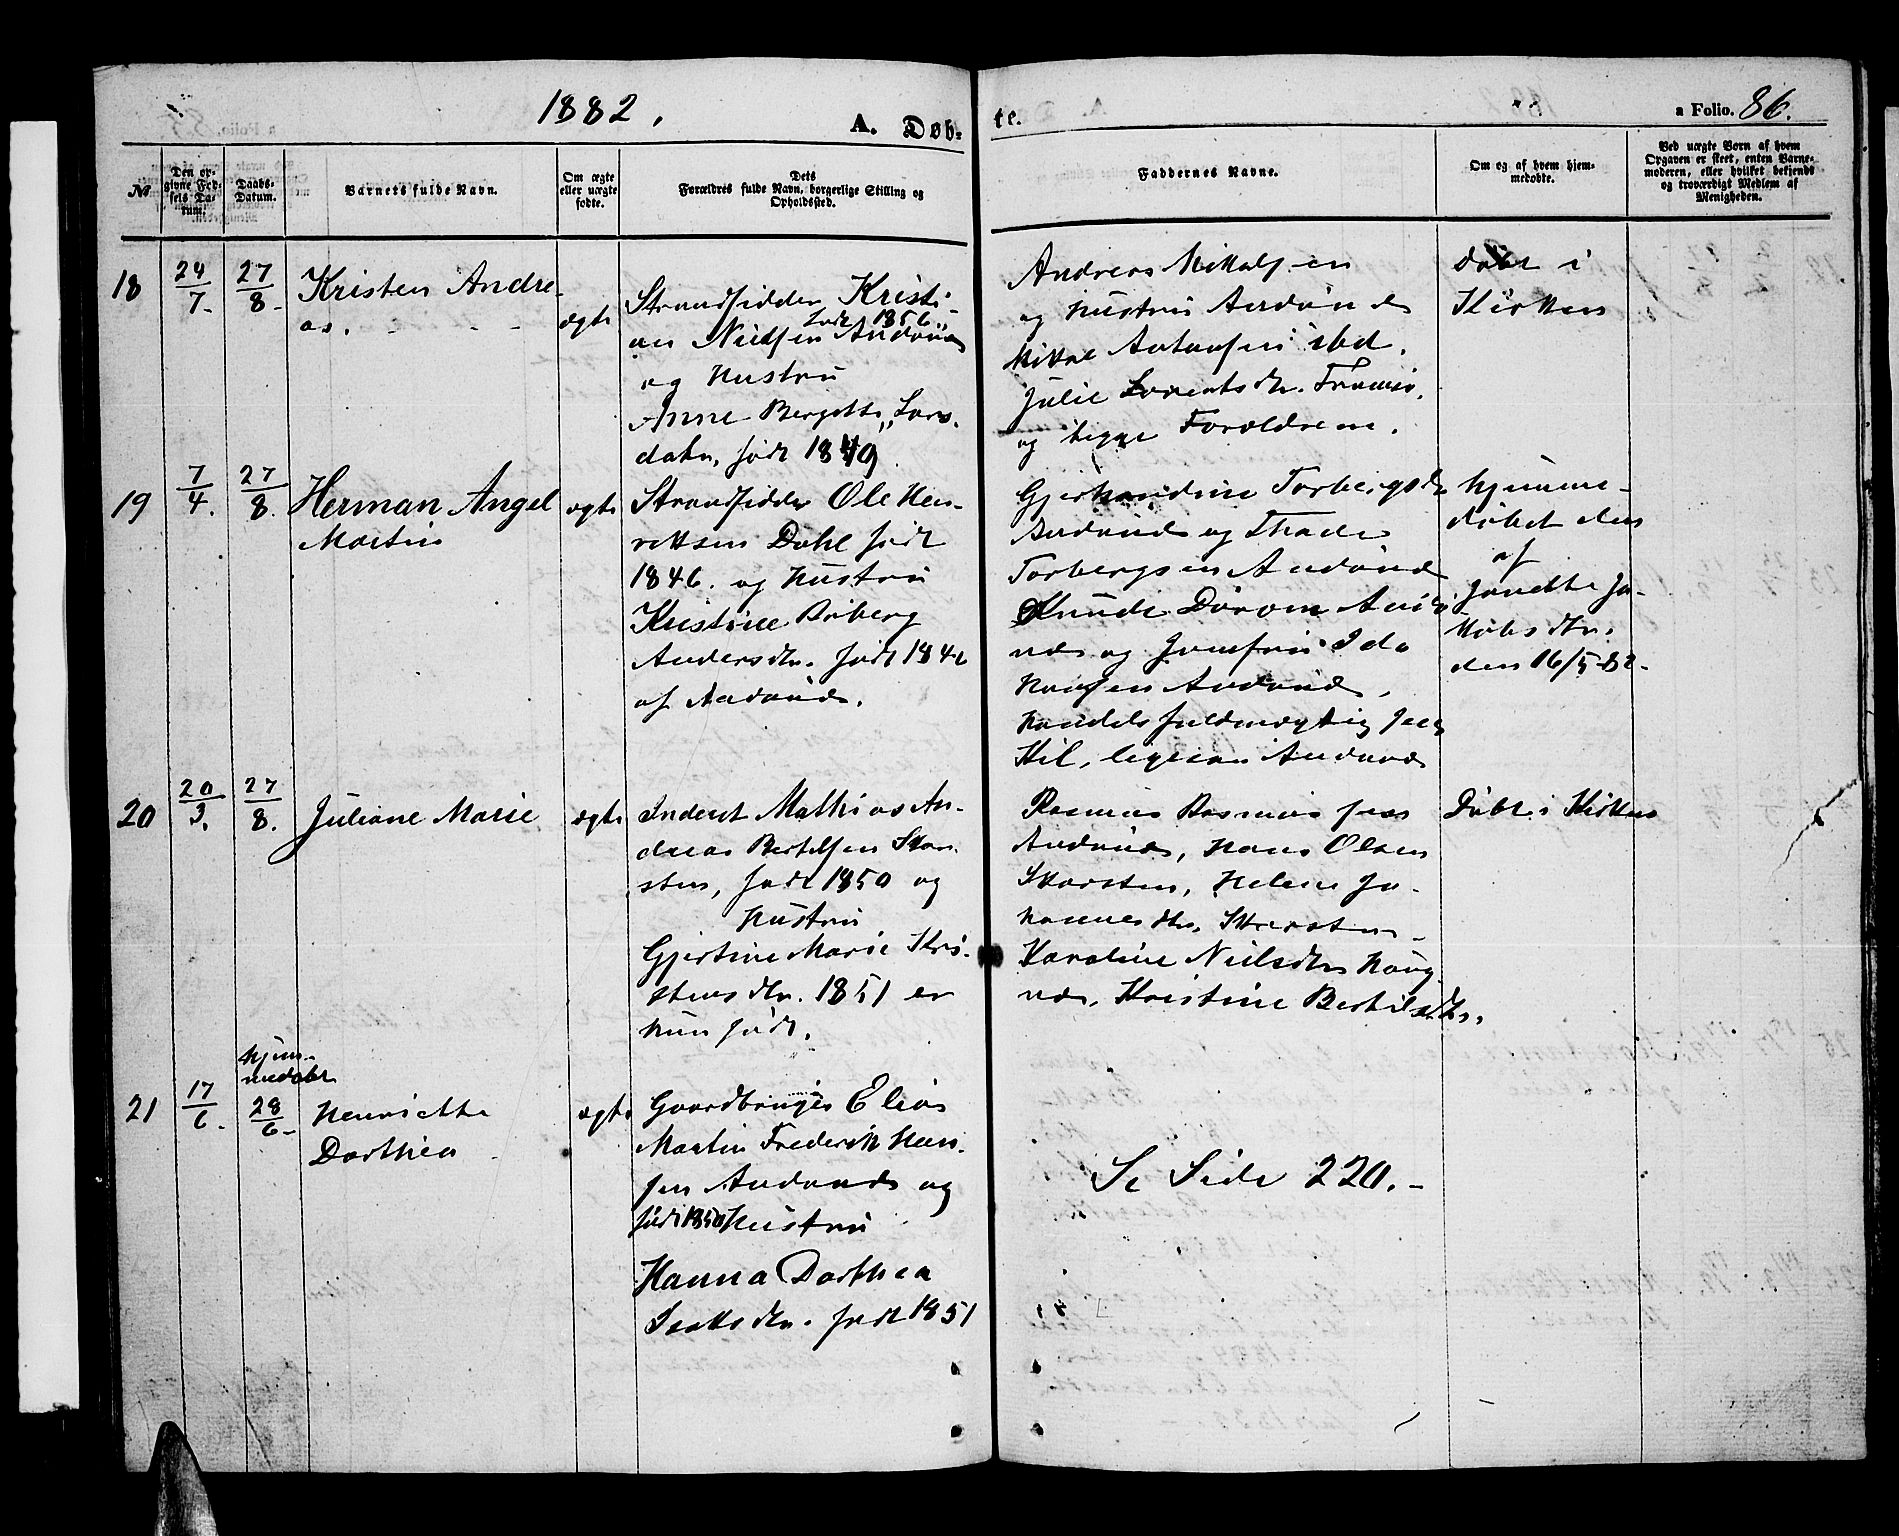 1882.
A. Døb-
te.
a Folio. 86.
No
Den op-
givne Fød-
sels Da-
tum.
Daabs-
Datum.
Barnets fulde Navn.
Om ægte
eller uægte
fødte.
Dets
Forældres fulde Navn, borgerlige Stilling og
Opholdssted.
Faddernes Navne.
Om og af hvem hjem-
medøbte.
Ved uægte Børn af hvem
Opgaven er skeet, enten Barne-
moderen, eller hvilket bekjendt
og troværdigt Medlem af
Menigheden.
18
24/7.
27/8.
Kristen Andre-
as.
ægte
Strandsidder Kristi-
født 1856
an Nielsen Andvand
og Hustru
Anne Bergette Lars-
datr. født 1849
Andreas Mikalsen
og Hustru
Mikal Antonsen ibd.
Julie Lorentsdtr. Tromsø,
og begge Forældrene.
døbt i
Kirken
19
7/4.
27/8.
Herman Angel
Martin
ægte
Strandsidder Ole Hen-
riksen Dahl født
1846. og Hustru
Kristine
Andersdtr. født 184
af
Torbergsdtr
og
Torbergsen
og Jomfru Ida
Hansen
Handelsfuldmægtig
hjemme-
døbet den
af
Ja-
kobsdtr.
den 16/5 82.
20
20/3.
27/8.
Juliane Marie
ægte
Inderst Mathias An-
dreas Bertelsen Skar-
sten, født 1850 og
Hustru
Gjertine Marie Kri-
stensdtr. 1851 er
hun født.
Rasmus Rasmussen
Hans Olsen
Skarsten, Helene Jo-
hannesdtr. Skarsten
Karoline Nielsdtr Haug
nes, Kristine Bertelsdtr.
Døbt i Kirken
21
17/6.
hjem-
medøbt
28/6.
Henriette
Dorthea
ægte
Gaardbruger Elias
Martin Frederik Han-
sen og
født 1850 Hustru
Hanna Dorthea
Isaksdtr. født 1851
Se Side 220.-